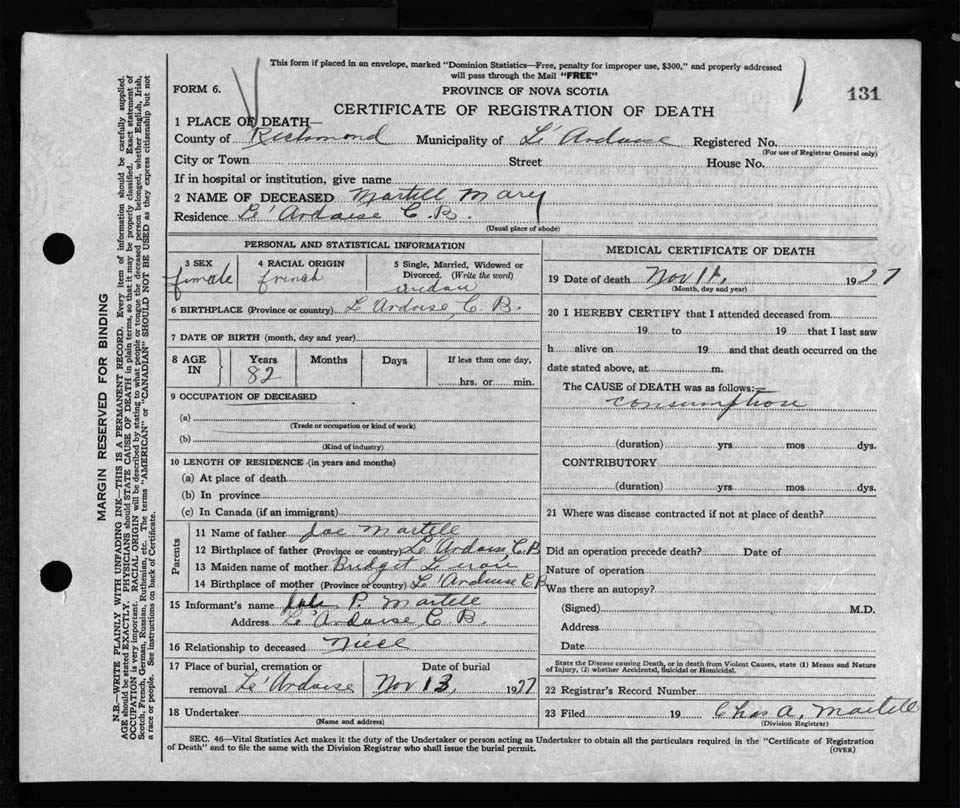 This form if placed in an envelope, marked "Dominion Statistics—Free, penalty for improper use, $300," and properly addressed
will pass through the Mail "FREE"
FORM 6.
PROVINCE OF NOVA SCOTIA
131
CERTIFICATE OF REGISTRATION OF DEATH
1 PLACE OF DEATH—
County of Richmond Municipality of L'Ardoise Registered No.
(For use of Registrar General only)
City or Town Street House No.
If in hospital or institution, give name
2 NAME OF DECEASED Martell Mary
Residence Le'Ardoise C.B.
(Usual place of abode)
PERSONAL AND STATISTICAL INFORMATION
3 SEX
female
4 RACIAL ORIGIN
french
5 Single, Married, Widowed or
Divorced. (Write the word)
6 BIRTHPLACE (Province or country) L'Ardoise, C.B.
7 DATE OF BIRTH (month, day and year)
8 AGE
IN
Years
82
Months
Days
If less than one day,
hrs. or min.
9 OCCUPATION OF DECEASED
(a)
(Trade or occupation or kind of work)
(b)
(Kind of industry)
10 LENGTH OF RESIDENCE (in years and months)
(a) At place of death
(b) In province
(c) In Canada (if an immigrant)
Parents
11 Name of father Joe Martell
12 Birthplace of father (Province or country) Le Ardoise, C.B
13 Maiden name of mother Bridget
14 Birthplace of mother (Province or country) L'Ardoise C.B
15 Informant's name P. Martell
Address Le'Ardoise, C.B.
16 Relationship to deceased Niece
17 Place of burial, cremation or
removal Le'Ardoise
Date of burial
Nov 13, 1927
18 Undertaker
(Name and address)
MEDICAL CERTIFICATE OF DEATH
19 Date of death Nov 11, 1927
(Month, day and year)
20 I HEREBY CERTIFY that I attended deceased from
19 to 19 that I last saw
h alive on 19 and that death occurred on the
date stated above, at m.
The CAUSE of DEATH was as follows:—
consumption
(duration) yrs mos dys.
CONTRIBUTORY
(duration) yrs mos dys.
21 Where was disease contracted if not at place of death?
Did an operation precede death? Date of
Nature of operation
Was there an autopsy?
(Signed) M.D.
Address
Date
State the Disease causing Death, or in death from Violent Causes, state (1) Means and Nature
of Injury, (2) whether Accidental, Suicidal or Homicidal.
22 Registrar's Record Number
23 Filed 19 Chas A. Martell
(Division Registrar)
SEC. 46—Vital Statistics Act makes it the duty of the Undertaker or person acting as Undertaker to obtain all the particulars required in the "Certificate of Registration
of Death" and to file the same with the Division Registrar who shall issue the burial permit.
(OVER)
MARGIN RESERVED FOR BINDING
N.B.—WRITE PLAINLY WITH UNFADING INK—THIS IS A PERMANENT RECORD. Every item of information should be carefully supplied.
AGE should be stated EXACTLY. PHYSICIANS should STATE CAUSE OF DEATH in plain terms, so that it may be properly classified. Exact statement of
OCCUPATION is very important. RACIAL ORIGIN will be described by stating to what people or tongue the deceased person belonged, whether English, Irish,
Scotch, French, German, Russian, Ruthenian, etc. The terms "AMERICAN" or "CANADIAN" SHOULD NOT BE USED as they express citizenship but not
a race or people. See instructions on back of Certificate.